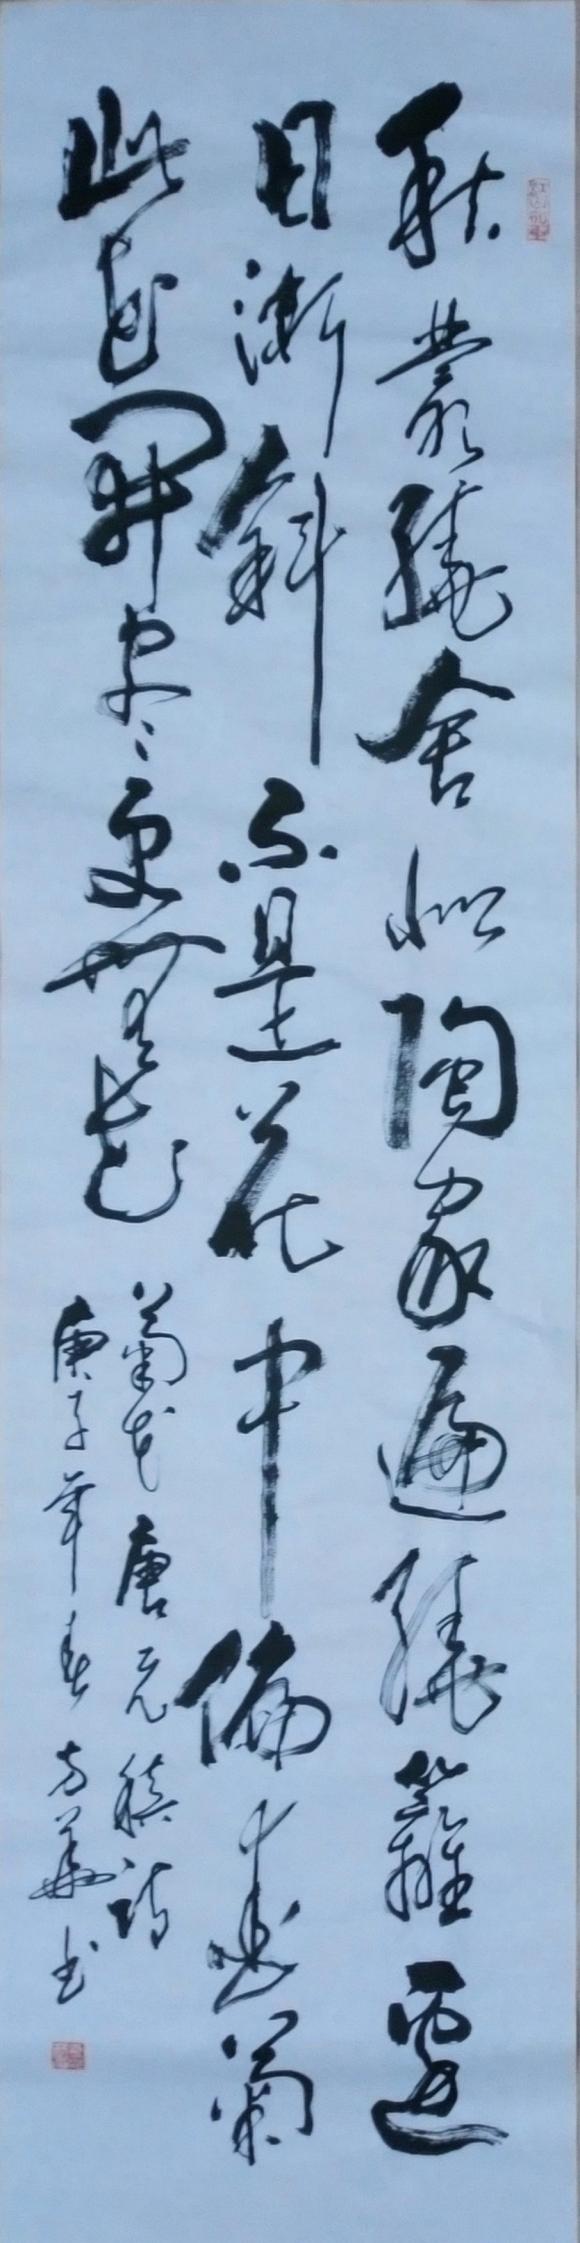 秋丛繞舍似陶家遍繞籬邊
日漸斜不是花中偏愛菊
此花開尽更無花
菊花唐元稹詩
庚子年春方華书